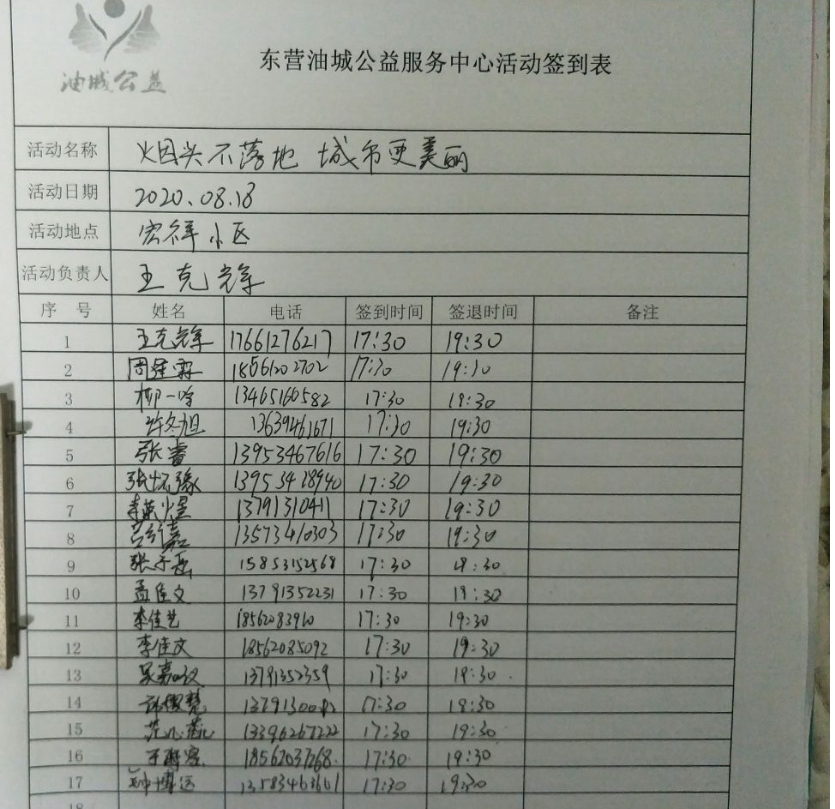 油城公益
东营油城公益服务中心活动签到表
活动名称 烟头不落地 城市更美丽
活动日期 2020.08.18
活动地点 宏祥小区
活动负责人 王克辉
序号 姓名 电话 签到时间 签退时间 备注
1 王克辉 17661276217 17:30 19:30
2 18561202702 17:30 19:30
3 柳一晗 13465160582 17:30 19:30
4 许冬旭 13639461671 17:30 19:30
5 张睿 13953467616 17:30 19:30
6 张怀豫 13953428940 17:30 19:30
7 13791310411 17:30 19:30
8 13573410303 17:30 19:30
9 张子磊 15853152568 17:30 19:30
10 孟佳文 13791352231 17:30 19:30
11 李佳艺 18562083910 17:30 19:30
12 李佳文 18562085092 17:30 19:30
13 13791352359 17:30 19:30
14 17:30 19:30
15 13396267222 17:30 19:30
16 17:30 19:30
17 13583463601 17:30 19:30
18